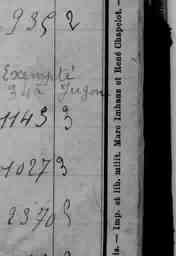 935 2
Exempté
342 Jugon
1143 3
10273
23705
is. — Imp. et lib. milit. Marc Imhaus et René Chapelot. —